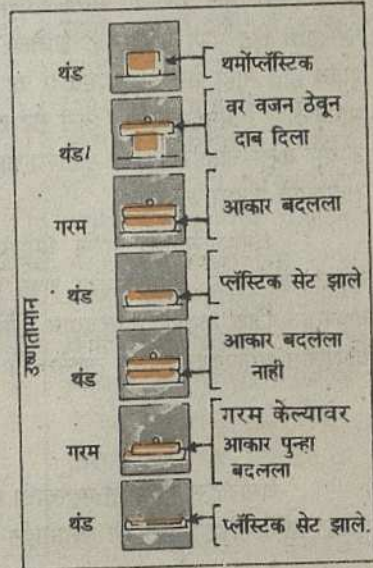 थंड
थर्मोप्लॅस्टिक
थंड/
वर वजन ठेवून
दाब दिला
गरम
आकार बदलला
थंड
प्लॅस्टिक सेट झाले
थंड
आकार बदलला
नाही
गरम
गरम केल्यावर
आकार पुन्हा
बदलला
थंड
प्लॅस्टिक सेट झाले.
उष्णतामान